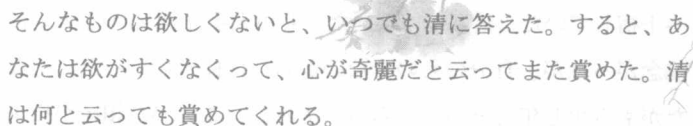 そんなものは欲しくないと、いつでも清に答えた。すると、あ
なたは欲がすくなくって、心が奇麗だと云ってまた賞めた。清
は何と云っても賞めてくれる。